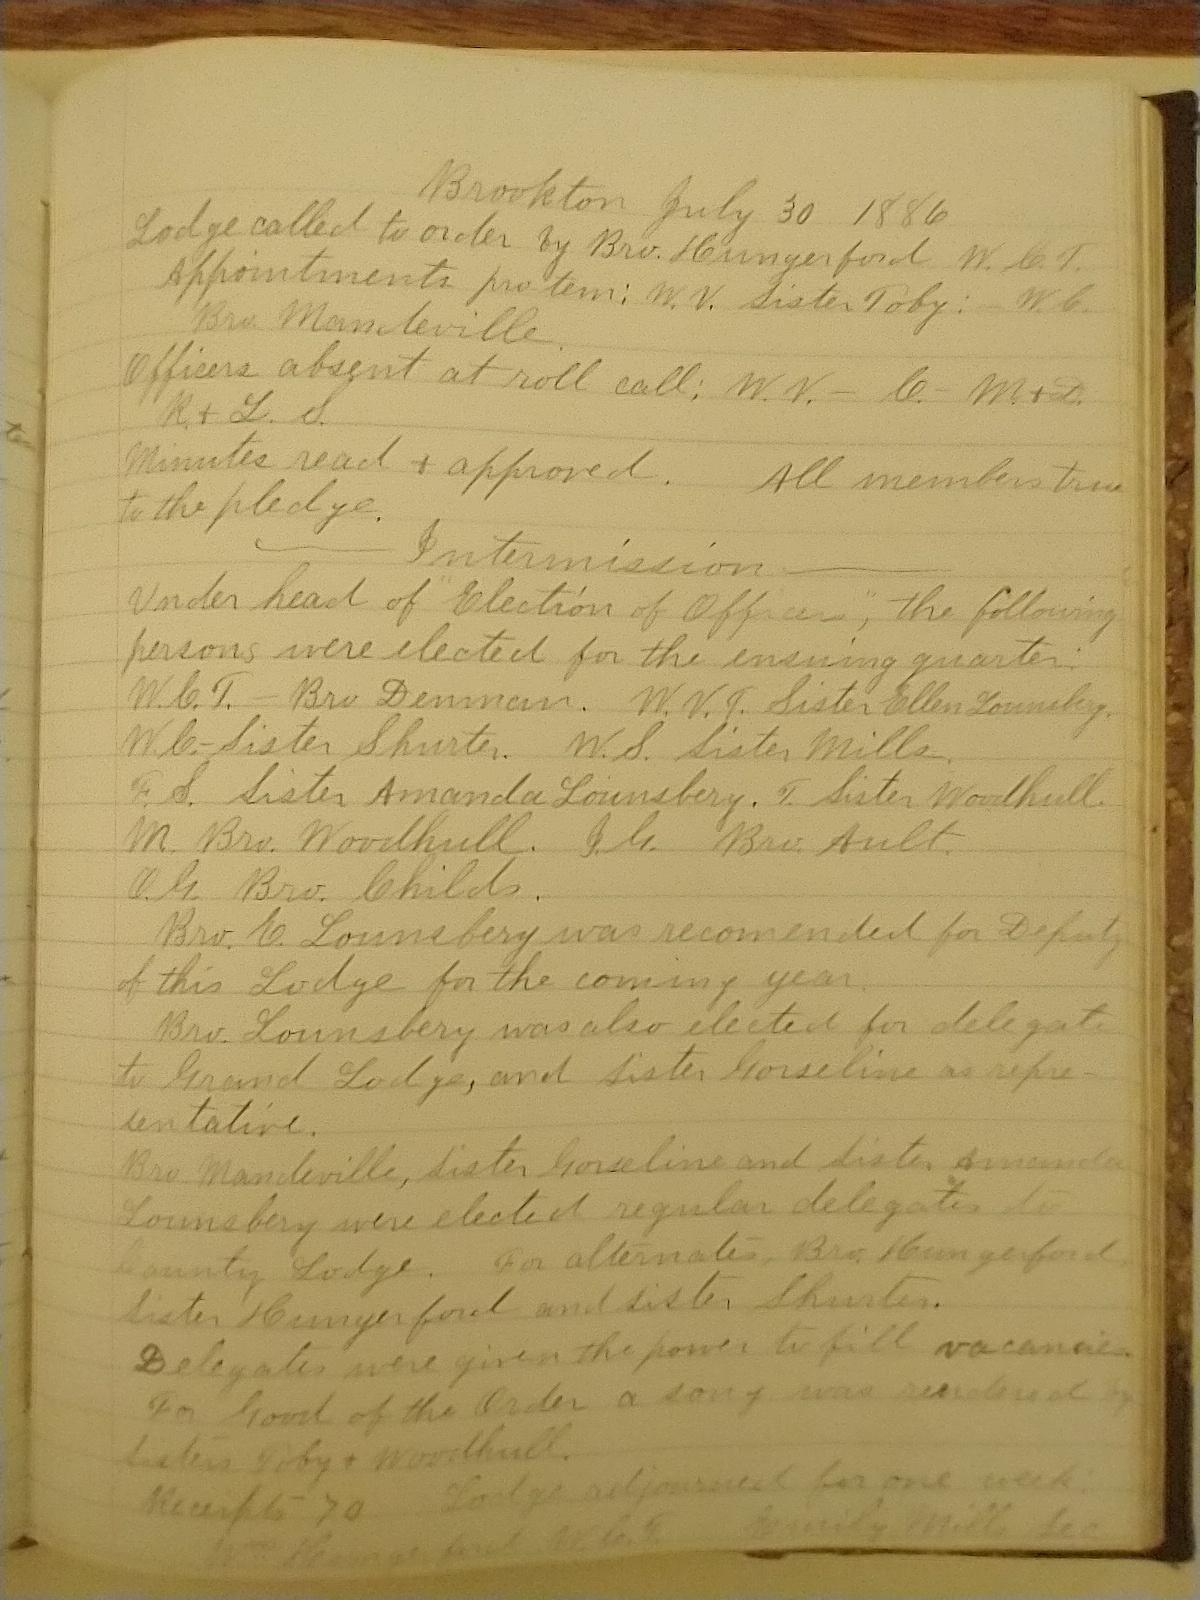 Brookton July 30 1886
Lodge called to order by Bro. Hungerford W.C.T.
Appointments protem: W.V. Sister Toby: - W.C.
Bro. Mandeville.
Officers absent at roll call; W.V. - C. - M. + D.
R. + L. S.
Minutes read + approved. All members true
to the pledge.
Intermission
Under head of "Election of Officers", the following
persons were elected for the ensuing quarter:
W.C.T. - Bro Denman. W.V.T. Sister Ellen Lounsbery.
W.C. - Sister Shurter. W.S. Sister Mills.
F.S. Sister Amanda Lounsbery. T. Sister Woodhull.
M. Bro. Woodhull. I.G. Bro. Ault.
O.G. Bro. Childs.
Bro. E. Lounsbery was recomended for Deputy
of this Lodge for the coming year.
Bro. Lounsbery was also elected for delegate
to Grand Lodge, and Sister Gorseline as repre-
sentative.
Bro Mandeville, Sister Gorseline and Sister Amanda
Lounsbery were elected regular delegates to
County Lodge. For alternates, Bro. Hungerford
Sister Hungerford and Sister Shurter.
Delegates were given the power to fill vacancies.
For Good of the Order a song was rendered by
Sisters Toby + Woodhull.
Receipts 70 Lodge adjourned for one week.
Wm Hungerford W.C.T. Emily Mills Sec